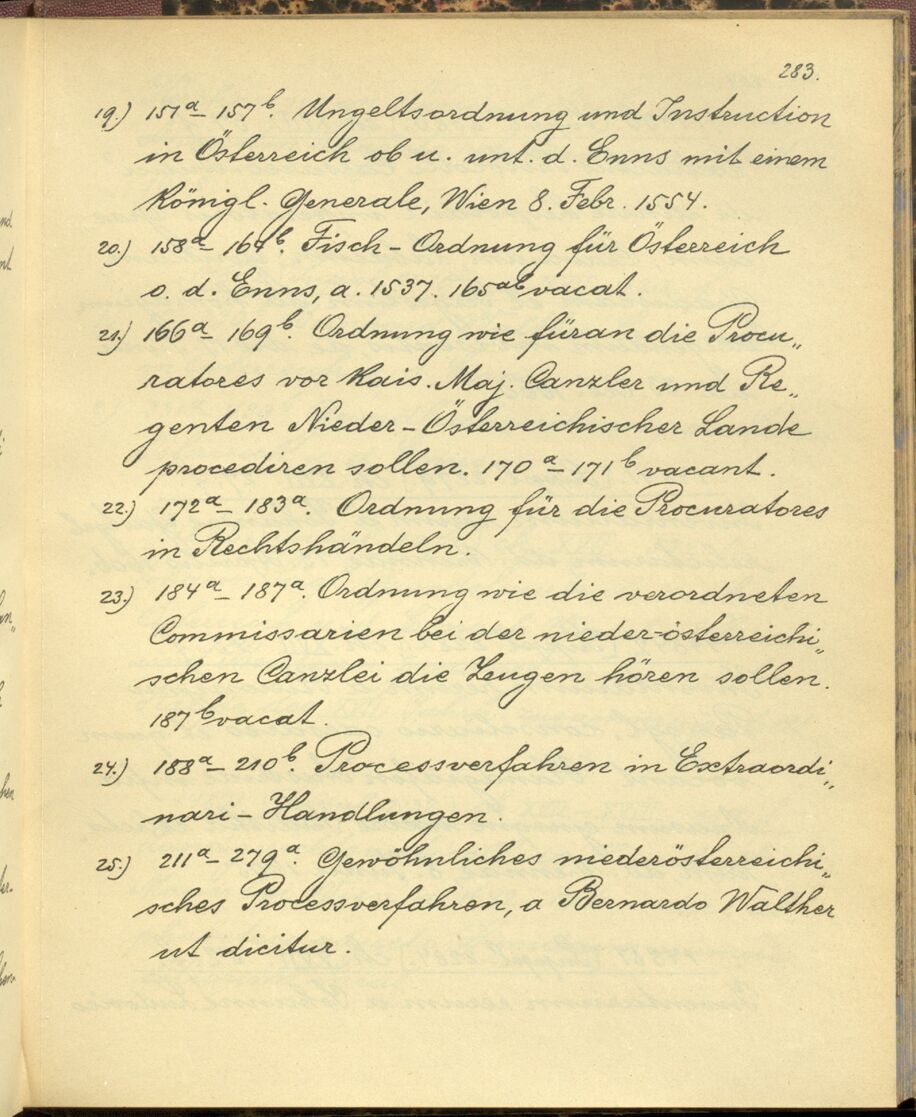 283.
19.) 151ᵃ– 157ᵇ. Ungeltsordnung und Instruction
in Österreich ob u. unt. d. Enns mit einem
Königl. Generale, Wien 8. Febr. 1554.
20.) 158ᵃ– 164ᵇ. Fisch-Ordnung für Österreich
o. d. Enns, a. 1537. 165ᵃᵇ vacat.
21.) 166ᵃ– 169ᵇ. Ordnung wie füran die Procu„
ratores vor Kais. Maj. Canzler und Re„
genten Nieder-Österreichischer Lande
procediren sollen. 170ᵃ– 171ᵇ vacant.
22.) 172ᵃ– 183ᵃ. Ordnung für die Procuratores
in Rechtshändeln.
23.) 184ᵃ– 187ᵃ. Ordnung wie die verordneten
Commissarien bei der nieder-österreichi„
schen Canzlei die Zeugen hören sollen.
187ᵇ vacat.
24.) 188ᵃ– 210ᵇ. Processverfahren in Extraordi„
nari-Handlungen.
25.) 211ᵃ– 279ᵃ. Gewöhnliches niederösterreichi„
sches Processverfahren, a Bernardo Walther
ut dicitur.